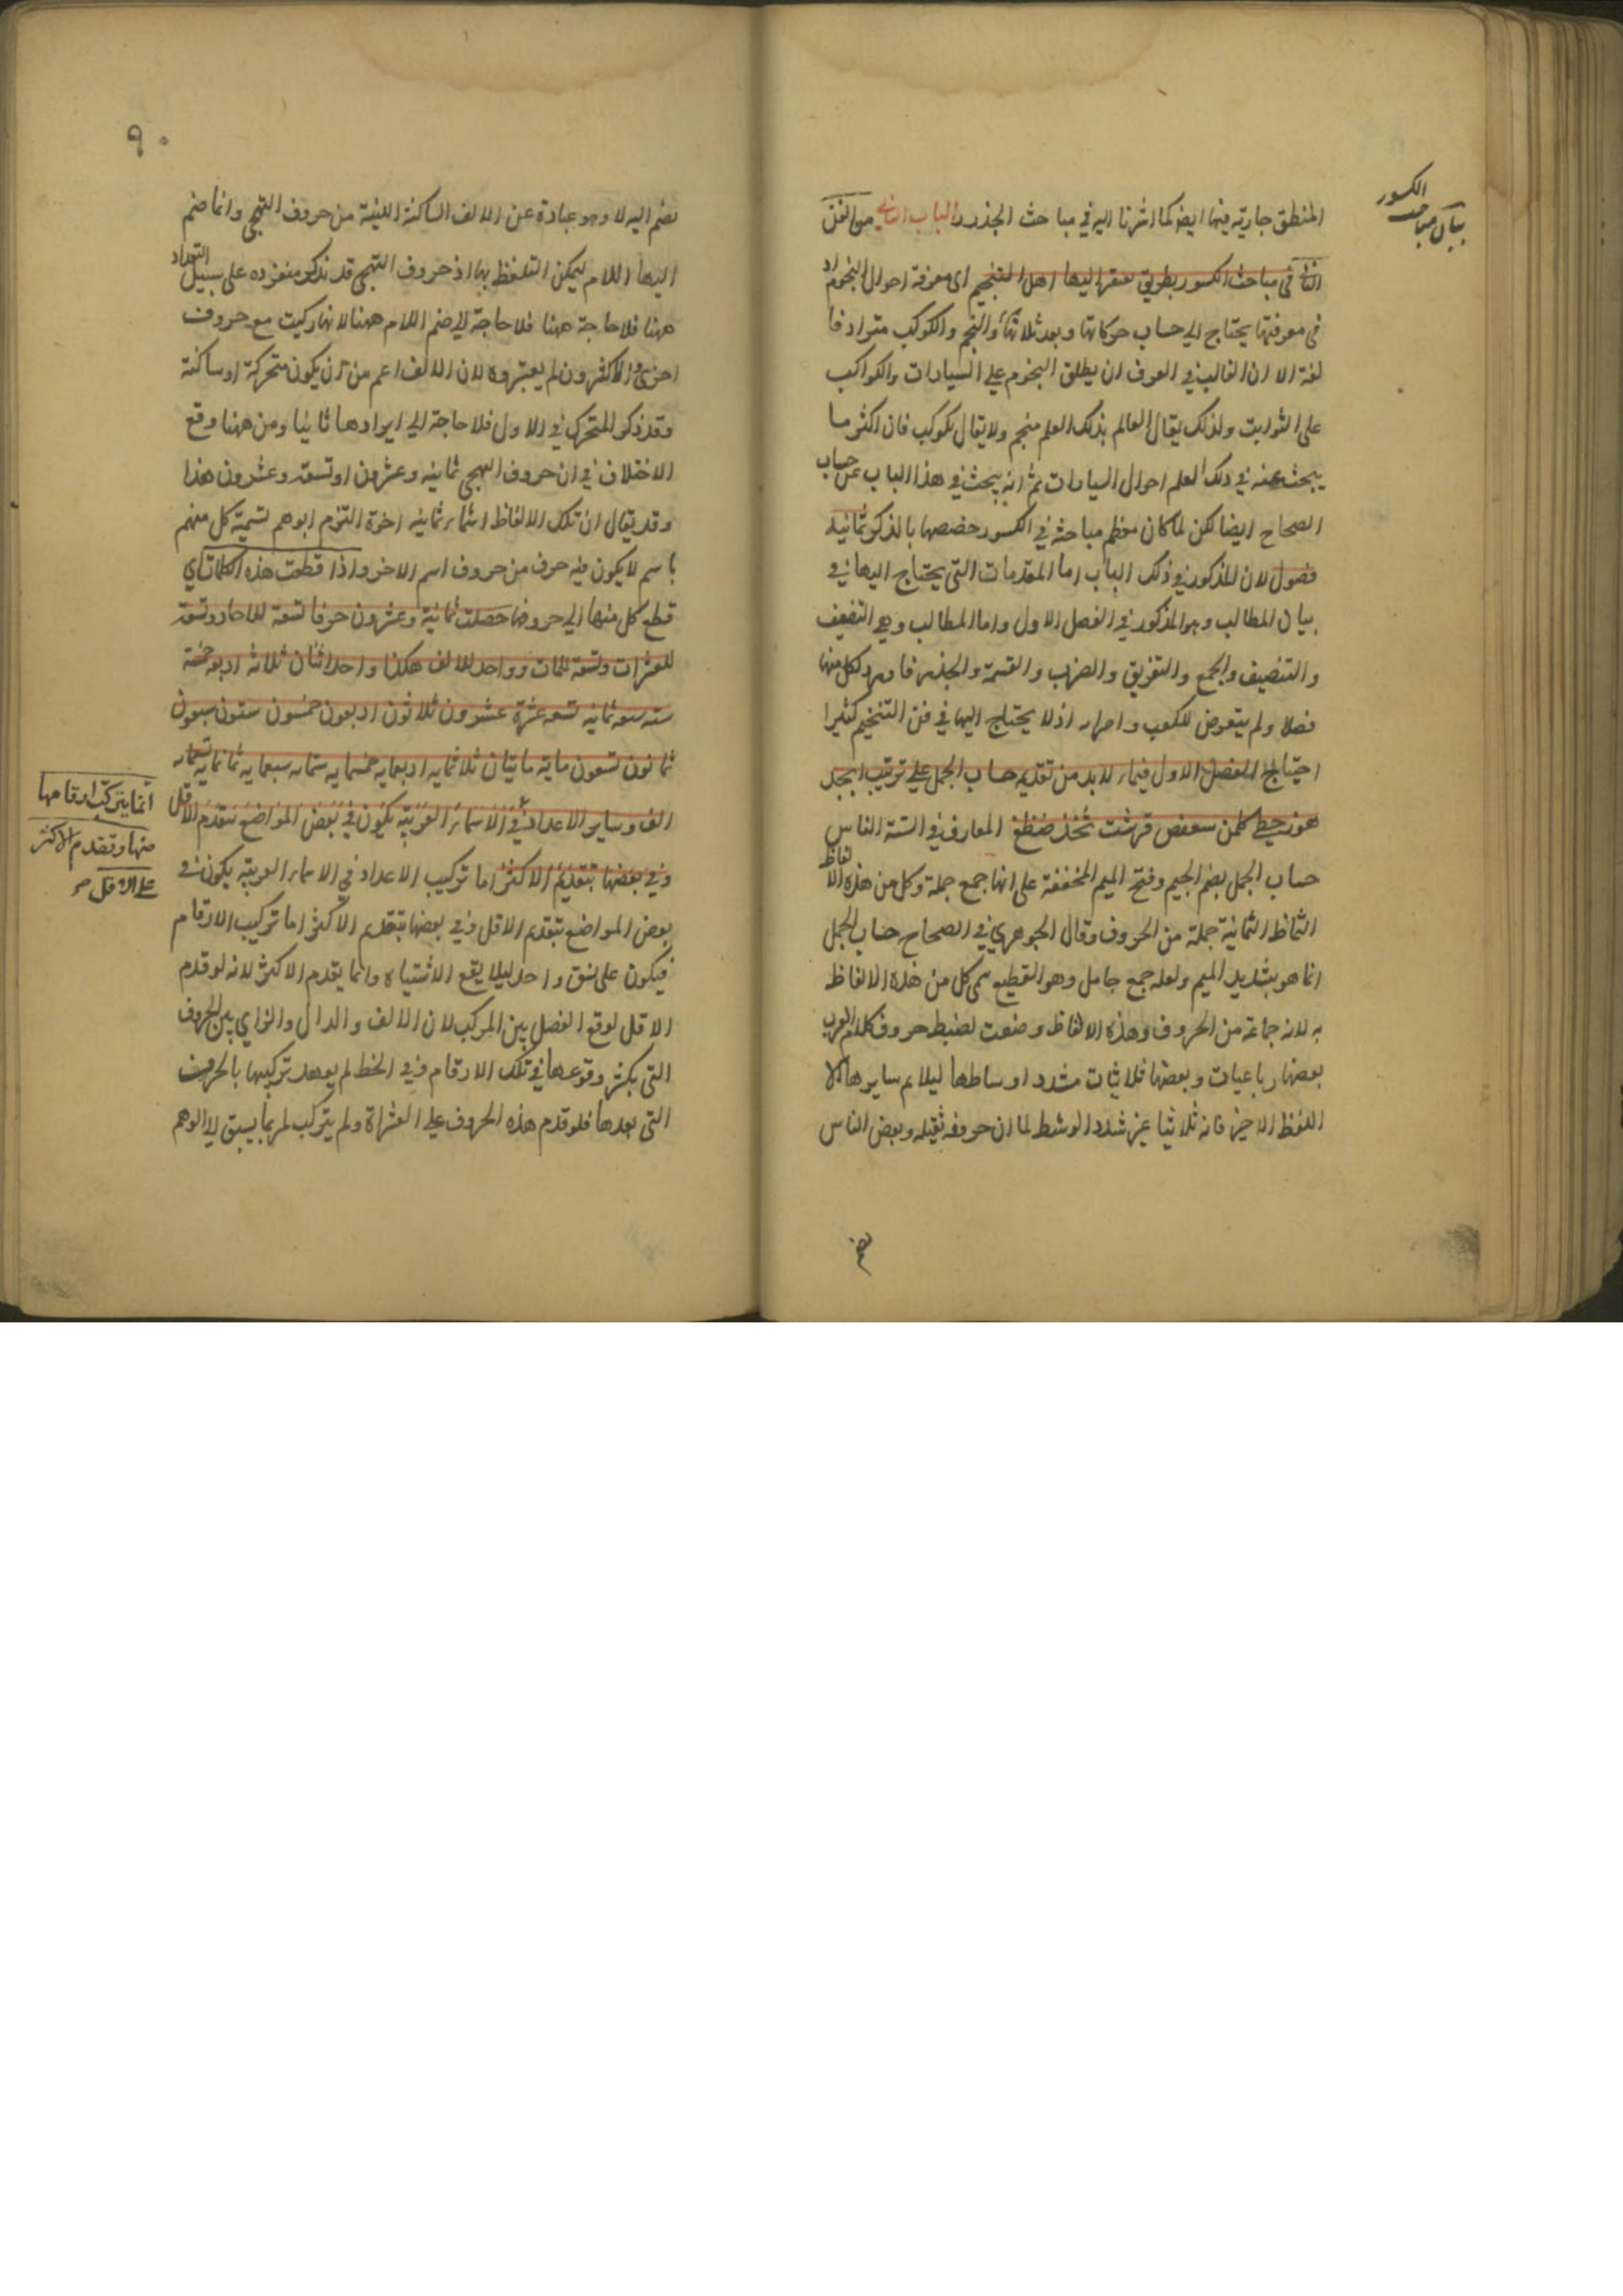 الكسور
بيان مباحث
المنطق جارية فيها ايضا كما اشرنا اليه في مباحث الجذر الباب الثاني من الفن
الثاني في مباحث الكسور بطريق يفتقر اليها اهل التنجيم اى معرفة احوال النجوم اذ
في معرفتها يحتاج الي حساب حركاتها وبعد والنجم والكوكب مترادفا
لغة الا ان الغالب في العرف ان يطلق النجوم علي السيارات والكواكب
على الثوابت ولذلك يقال العالم بذلك العلم منجم ولا يقال مكوكب فان اكثر ما
يبحث عنه في ذلك العلم احوال السيارات ثم انه يبحث في هذا الباب عن حساب
الصحاح ايضا لكن لما كان معظم مباحثه في الكسور خصصها بالذكر ثمانية
فصول لان المذكور في ذلك الباب اما المقدمات التي يحتاج اليها في
بيان المطالب وهو المذكور في الفصل الاول واما المطالب وهي التضعيف
والتنصيف والجمع والتفريق والضرب والقسمة والجذر فاورد لكل منها
فصلا ولم يتعرض للكعب و اذ لا يحتاج اليها في فن التنجيم كثيرا
احتياج الفصل الاول فيما لا بد من تقديمه حساب الجمل على ترتيب ابجد
هوز حطي كلمن سعفص قرشت ثخذ ضظغ المعارف في السنة الناس
حساب الجمل بضم الجيم وفتح الميم المخففة على انها جمع جملة وكل من هذه الالفاظ
الثمانية جملة من الحروف وقال الجوهري في الصحاح حساب الجمل
انما هو بتشديد الميم ولعله جمع جامل وهو القطيع سمى كل من هذه الالفاظ
به لانه جماعة من الحروف وهذه الالفاظ وضعت لضبط حروف كلام العرب
بعضها رباعيات وبعضها ثلاثيات مشدد اوساطها ليلايم سايرها الا
اللفظ الاخير فانه ثلاثيا غير مشدد الوسط لما ان حروفه ثقيلة وبعض الناس
يضم
٩٠
يضم اليه لا وهو عبارة عن الالف الساكنة اللينة من حروف التهجي وانما ضم
اليها اللام ليمكن التلفظ بها اذ حروف التهجي قد تذكر منفرده على سبيل التعداد
ههنا فلا حاجة ههنا فلا حاجة الي ضم اللام ههنا لانها ركبت مع حروف
اخرى والاكثرون لم يعتبروه لان الالف اعم من ان يكون متحركة او ساكنة
وقد ذكر المتحرك في الاول فلا حاجة الي ايرادها ثانيا ومن ههنا وقع
الاختلاف في ان حروف التهجي ثمانية وعشرون او تسعة وعشرون هذا
وقد يقال ان تلك الالفاظ اسماء ثمانية اخوة التزم ابوهم تسمية كل منهم
باسم لا يكون فيه حرف من حروف اسم الاخر واذا قطعت هذه الكلمات اي
قطع كل منها الي حروفها حصلت ثمانية وعشرون حرفا تسعة للاحاد وتسعة
للعشرات وتسعة للمات وواحد للالف هكذا واحد اثنان ثلاثة اربعة خمسة
سته سبعه ثمانيه تسعه عشرة عشرون ثلاثون اربعون خمسون ستون سبعون
ثمانون تسعون ماية مايتان ثلاثمايه اربعمايه خمسمايه ستمايه سبعمايه ثمانمايه تسعمايه
الف وساير الاعداد في الاسماء العربية يكون في بعض المواضع بتقديم الاقل
وفي بعضها بتقديم الاكثر اما تركيب الاعداد في الاسماء العربية يكون في
بعض المواضع بتقديم الاقل وفي بعضها بتقديم الاكثر اما تركيب الارقام
فيكون على نسق واحد ليلا يقع الاشتباه وانما يقدم الاكثر لانه لو قدم
الاقل لوقع الفصل بين المركب لان الالف والدال والزاي بين الحروف
التي يكثر وقوعها في تلك الارقام وفي الخط لم يعهد تركيبها بالحروف
التي بعدها فلو قدم هذه الحروف على العشراة ولم يتركب لربما يسبق الي الوهم
انما يتركب ارقامها
منها وتقدم الاكثر
علي الاقل صح